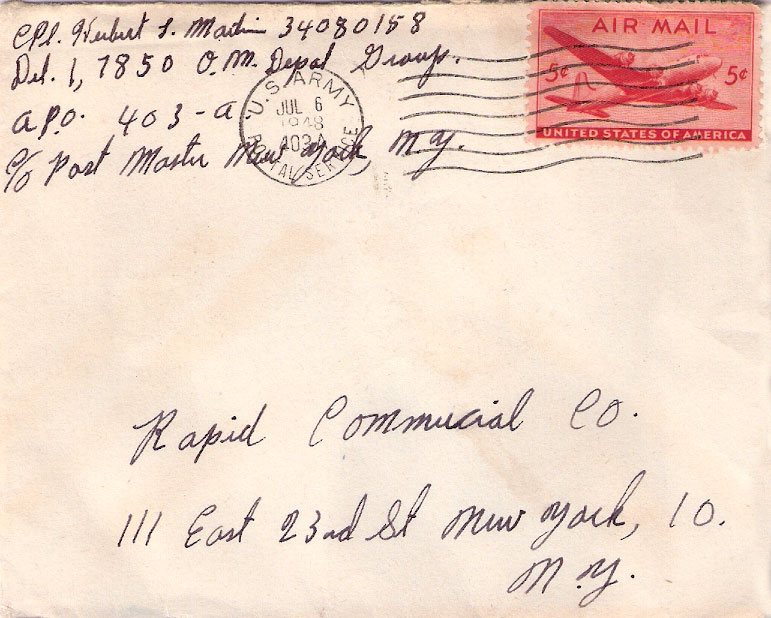 CPl. Herbert L. Martin 34080158
Det. 1, 7850 O.M. Depot Group.
A.P.O. 403-A
c/o Post Master New York, N.Y.
U.S. ARMY
JUL 6
1948
403 A
POSTAL SERVICE
AIR MAIL
5¢ 5¢
UNITED STATES OF AMERICA
Rapid Commucial Co.
111 East 23rd St New York, 10.
N.Y.